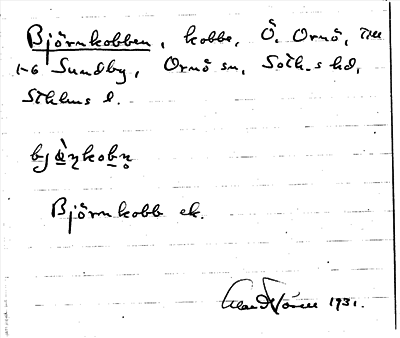 Björnkobben, kobbe, Ö. Ornö, till
1-6 Sundby, Ornö sn, Soth.s hd,
Sthlms l.
Björnkobb ek.
1931.